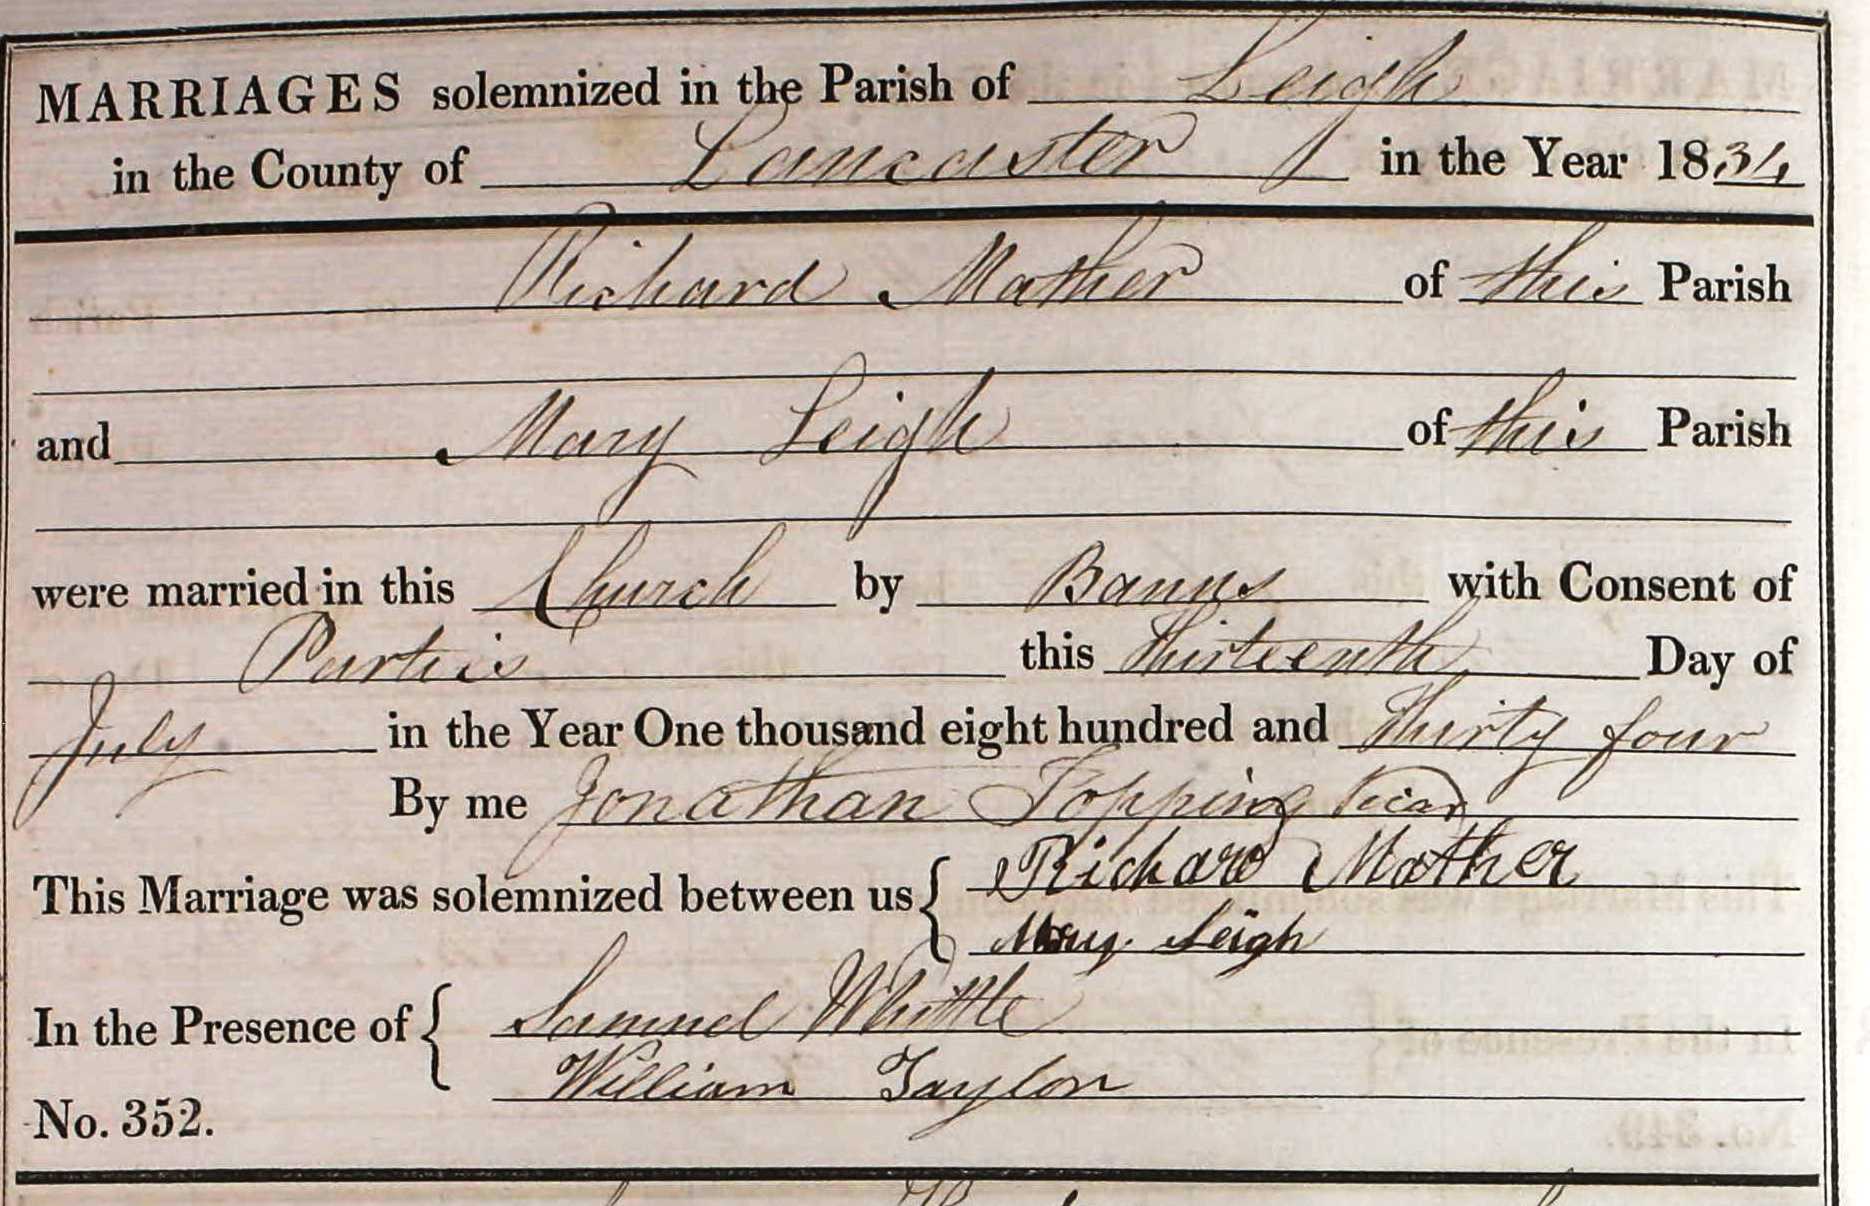 MARRIAGES solemnized in the Parish of Leigh
in the County of Lancaster in the Year 1834
Richard Mather of this Parish
and Mary Leigh of this Parish
were married in this Church by Banns with Consent of
Parties this thirteenth Day of
July in the Year One thousand eight hundred and thirty four
By me Jonathan Topping Vicar
This Marriage was solemnized between us { Richard Mather
Mary Leigh
In the Presence of { Samuel Whittle
William Taylor
No. 352.